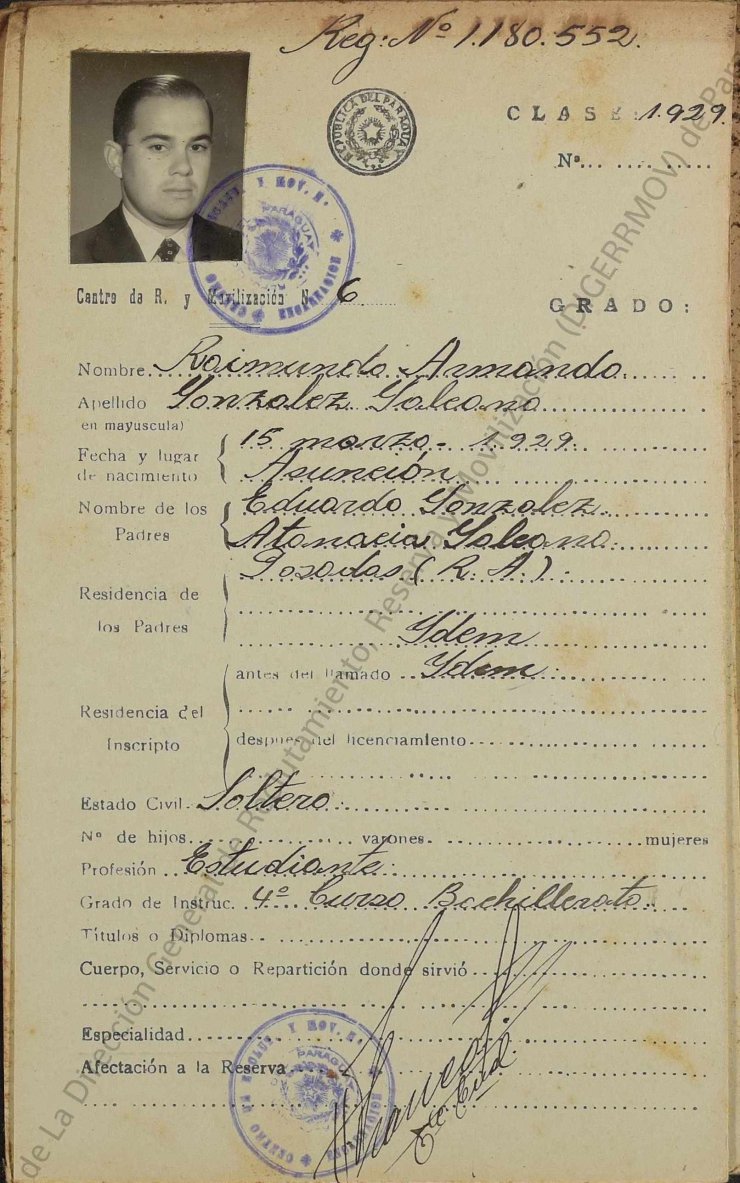 Reg: Nº 1.180.552.
REPUBLICA DEL PARAGUAY
CLASE 1.929
Nº... .... ......
Centro de R. y Movilización N. 6
GRADO:
Nombre Raimundo Armando
Apellido Gonzalez Galeano
en mayuscula)
Fecha y lugar de nacimiento 15 marzo - 1.929.
Asunción
Nombre de los Padres Eduardo Gonzalez
Atanacia Galeano
Residencia de los Padres Posadas (R. A.)
Ydem
Residencia del Inscripto antes del llamado Ydem
despues del licenciamiento
Estado Civil Soltero
Nº de hijos varones mujeres
Profesión Estudiante
Grado de Instruc. 4º Curso Bachillerato
Títulos o Diplomas
Cuerpo, Servicio o Repartición donde sirvió
Especialidad
Afectación a la Reserva
PARAGUAY
de La Dirección General de Reclutamiento, Reserva y Movilización (DIGERRMOV) de Par